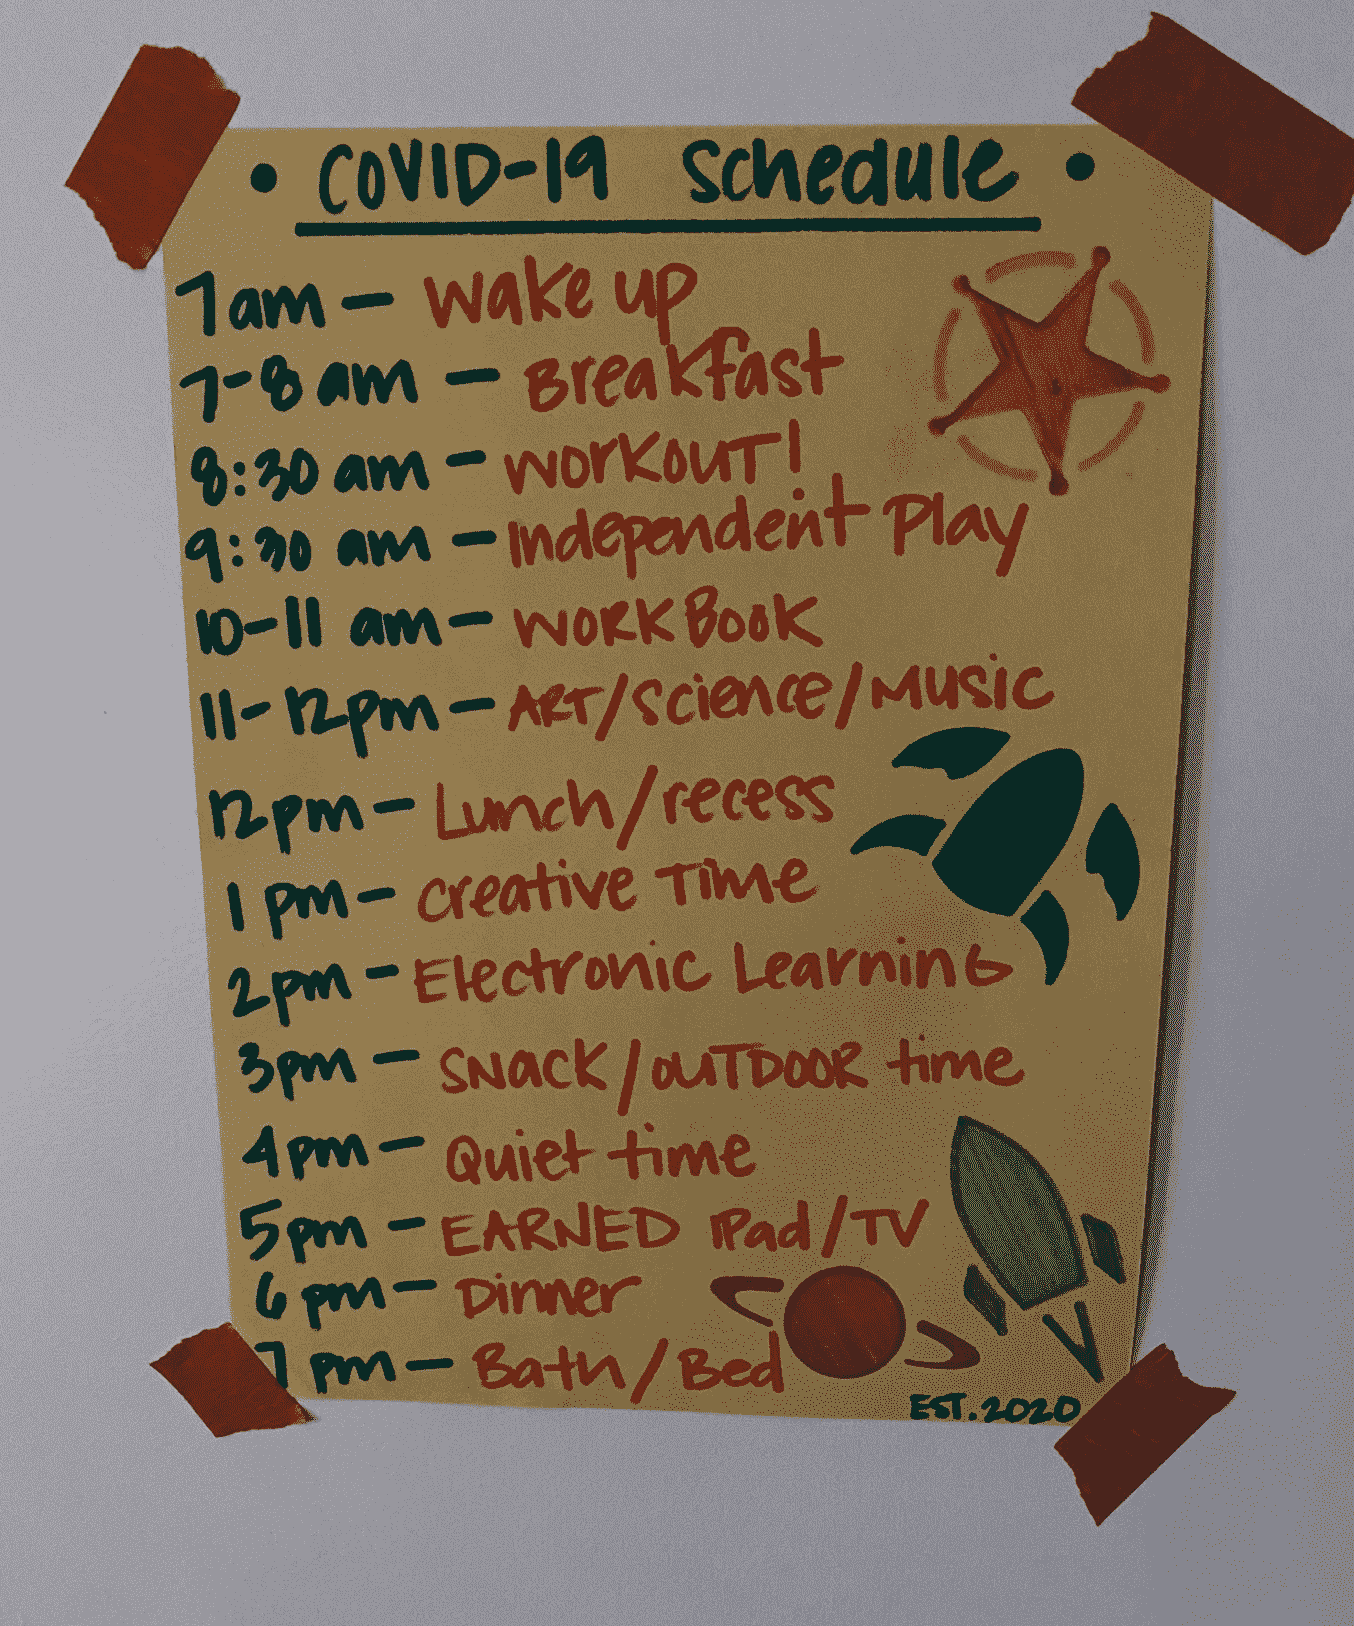 • COVID-19 Schedule •
7am - Wake up
7-8 am - Breakfast
8:30 am - WORKOUT!
9:30 am - Independent Play
10-11 am - WORKBOOK
11-12pm - ART/Science/Music
12pm - Lunch/recess
1 pm - Creative Time
2pm - Electronic Learning
3pm - Snack/OUTDOOR time
4pm - Quiet time
5pm - EARNED iPad/TV
6 pm - Dinner
7 pm - Bath/Bed
EST. 2020